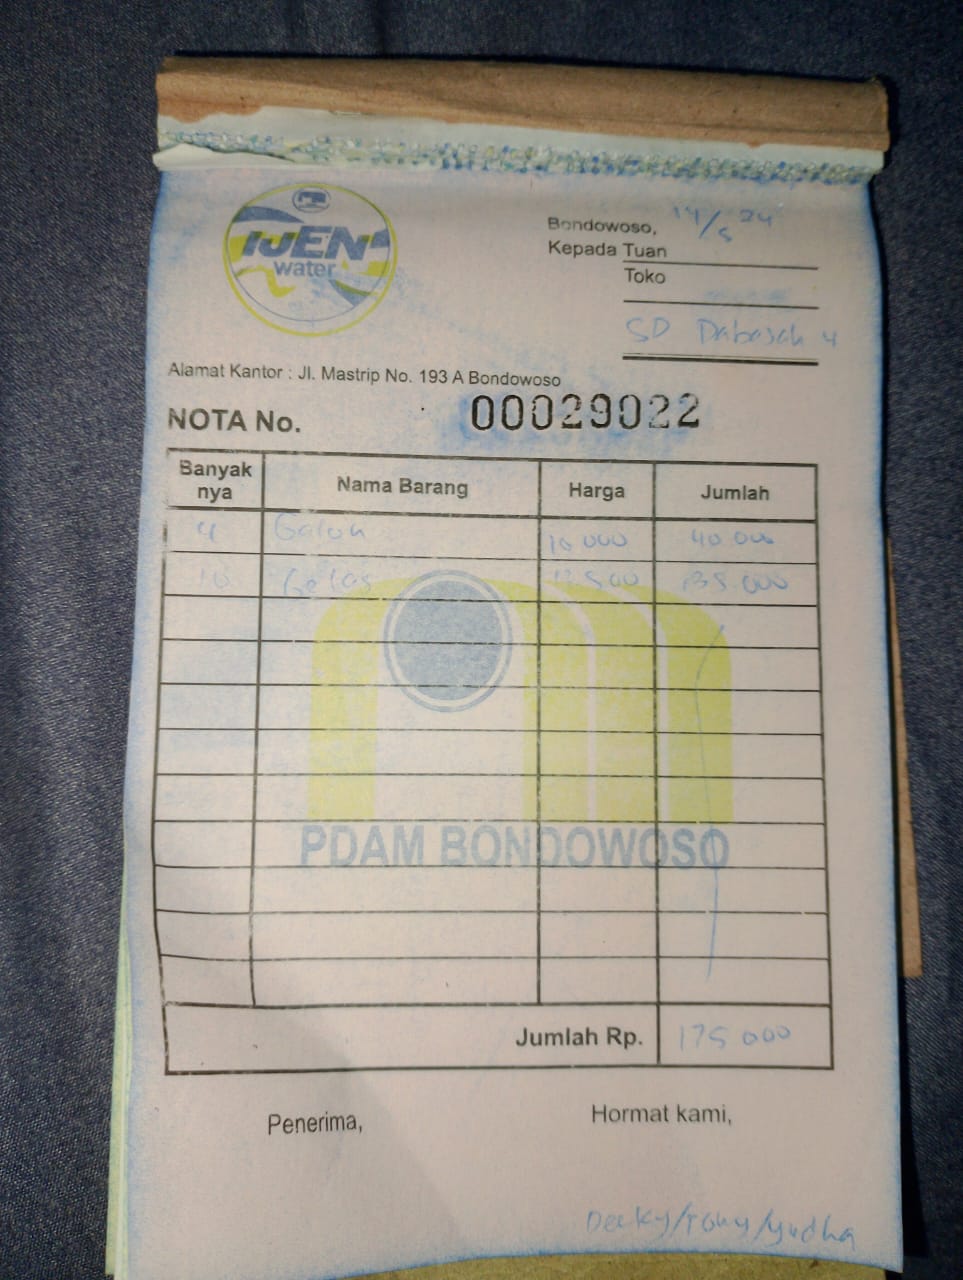 IJEN
water
Bondowoso, 14/5 24
Kepada Tuan
Toko
SD Dabasah 4
Alamat Kantor : Jl. Mastrip No. 193 A Bondowoso
NOTA No. 00029022
Banyak nya Nama Barang Harga Jumlah
4 Galon 10 000 40 000
10 Gelas 13 500 135.000
PDAM BONDOWOSO
Jumlah Rp. 175 000
Penerima, Hormat kami,
Decky/Tony/Yudha